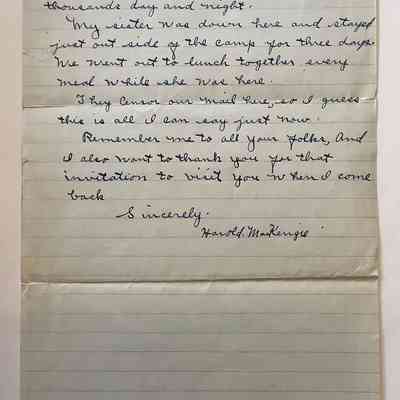 thousands day and night.
My sister was down here and stayed
just out side of the camp for three days.
We went out to lunch together every
meal while she was here.
They Censor our mail here, so I guess
this is all I can say just now.
Remember me to all your folks, And
I also want to thank you for that
invitation to visit you when I come
back
Sincerely.
Harold. MacKenzie